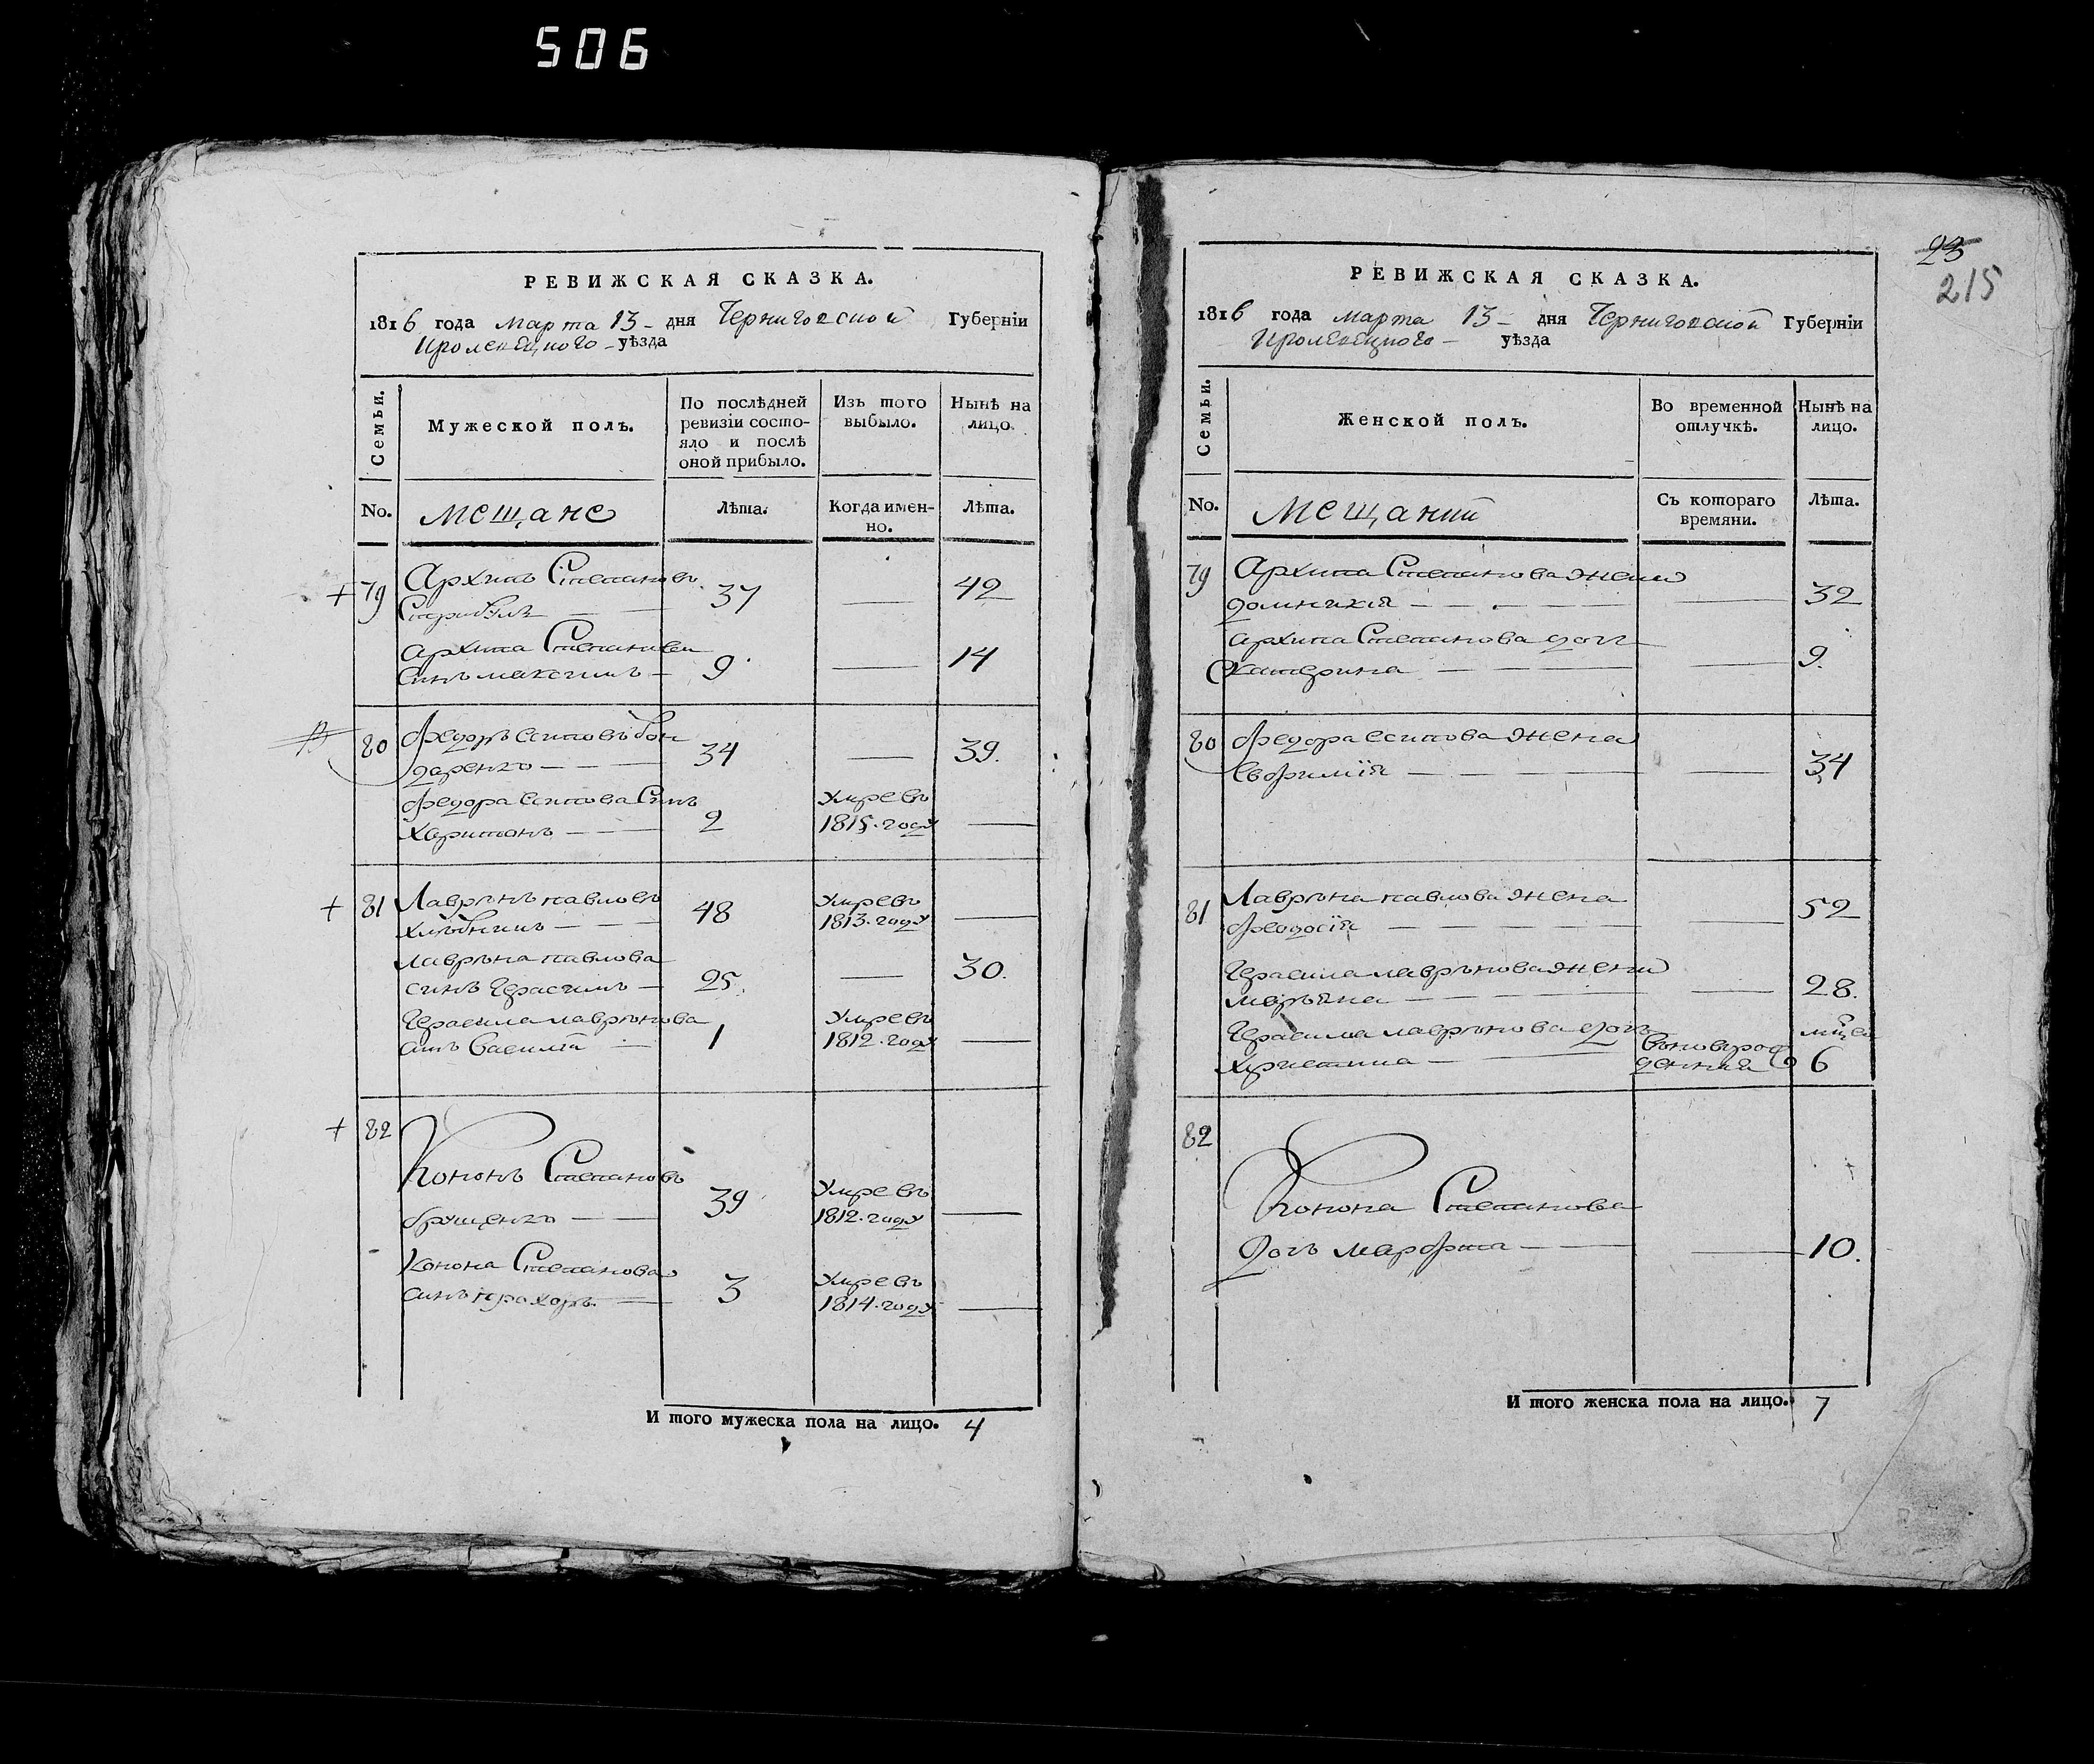 506
РЕВИЖСКАЯ СКАЗКА.
1816 года Марта 13 - дня Черниговской Губерніи
Кролевецкого - уѣзда
Семьи.
Мужеской полъ.
По послѣдней ревизіи состояло и послѣ оной прибыло.
Изъ того выбыло.
Нынѣ на лицо.
No.
Мещане
Лѣта.
Когда именно.
Лѣта.
+ 79 Архипъ Степановъ 37 — 42
Архипа Степанова 9 — 14
синъ максимъ —
80 Федоръ Есиповъ Бон 34 — 39.
даренко — —
Федора Есипова Синъ 2 Умре въ
Харитонъ — — 1815. году —
+ 81 Лаврѣнъ павловъ 48 Умре въ
Хлѣбникъ — — 1813. году —
Лаврѣна павлова 25. — 30.
синъ Герасимъ —
Герасима лаврѣнова 1 Умре въ
синъ Василій — 1812. году —
+ 82 Кононъ Степановъ 39 Умре въ
— 1812. году —
Конона Степанова 3 Умре въ
синъ прохоръ — 1814. году —
И того мужеска пола на лицо. 4
23
215
РЕВИЖСКАЯ СКАЗКА.
1816 года марта 13 - дня Черниговской Губерніи
Кролевецкого - уѣзда
Семьи.
Женской полъ.
Во временной отлучкѣ.
Нынѣ на лицо.
No.
Съ котораго времяни.
Лѣта.
79 Архипа Степанова жена
Домникія — — — — 32
Архипа Степанова дочь
Катерина — — — 9.
80 Федора Есипова жена
Евфимія — — — — 34
81 Лаврѣна павлова жена
Феодосія — — — — 52
Герасима лаврѣнова жена
марѣяна — — — 28.
Герасима лаврѣнова дочь
Христина — — 6
82 Конона Степанова
Дочь Марфа — — 10.
И того женска пола на лицо. 7